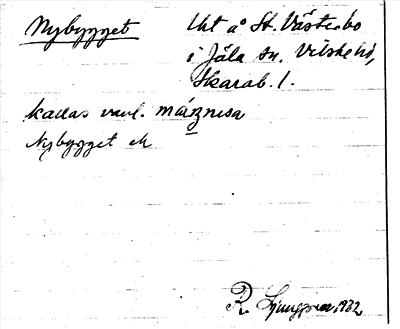 Nybygget
Uht a° St. Västerbo
i Jäla sn. Vilske hd,
Skarab. l.
kallas vanl.
Nybygget
R. Ljunggren 1932